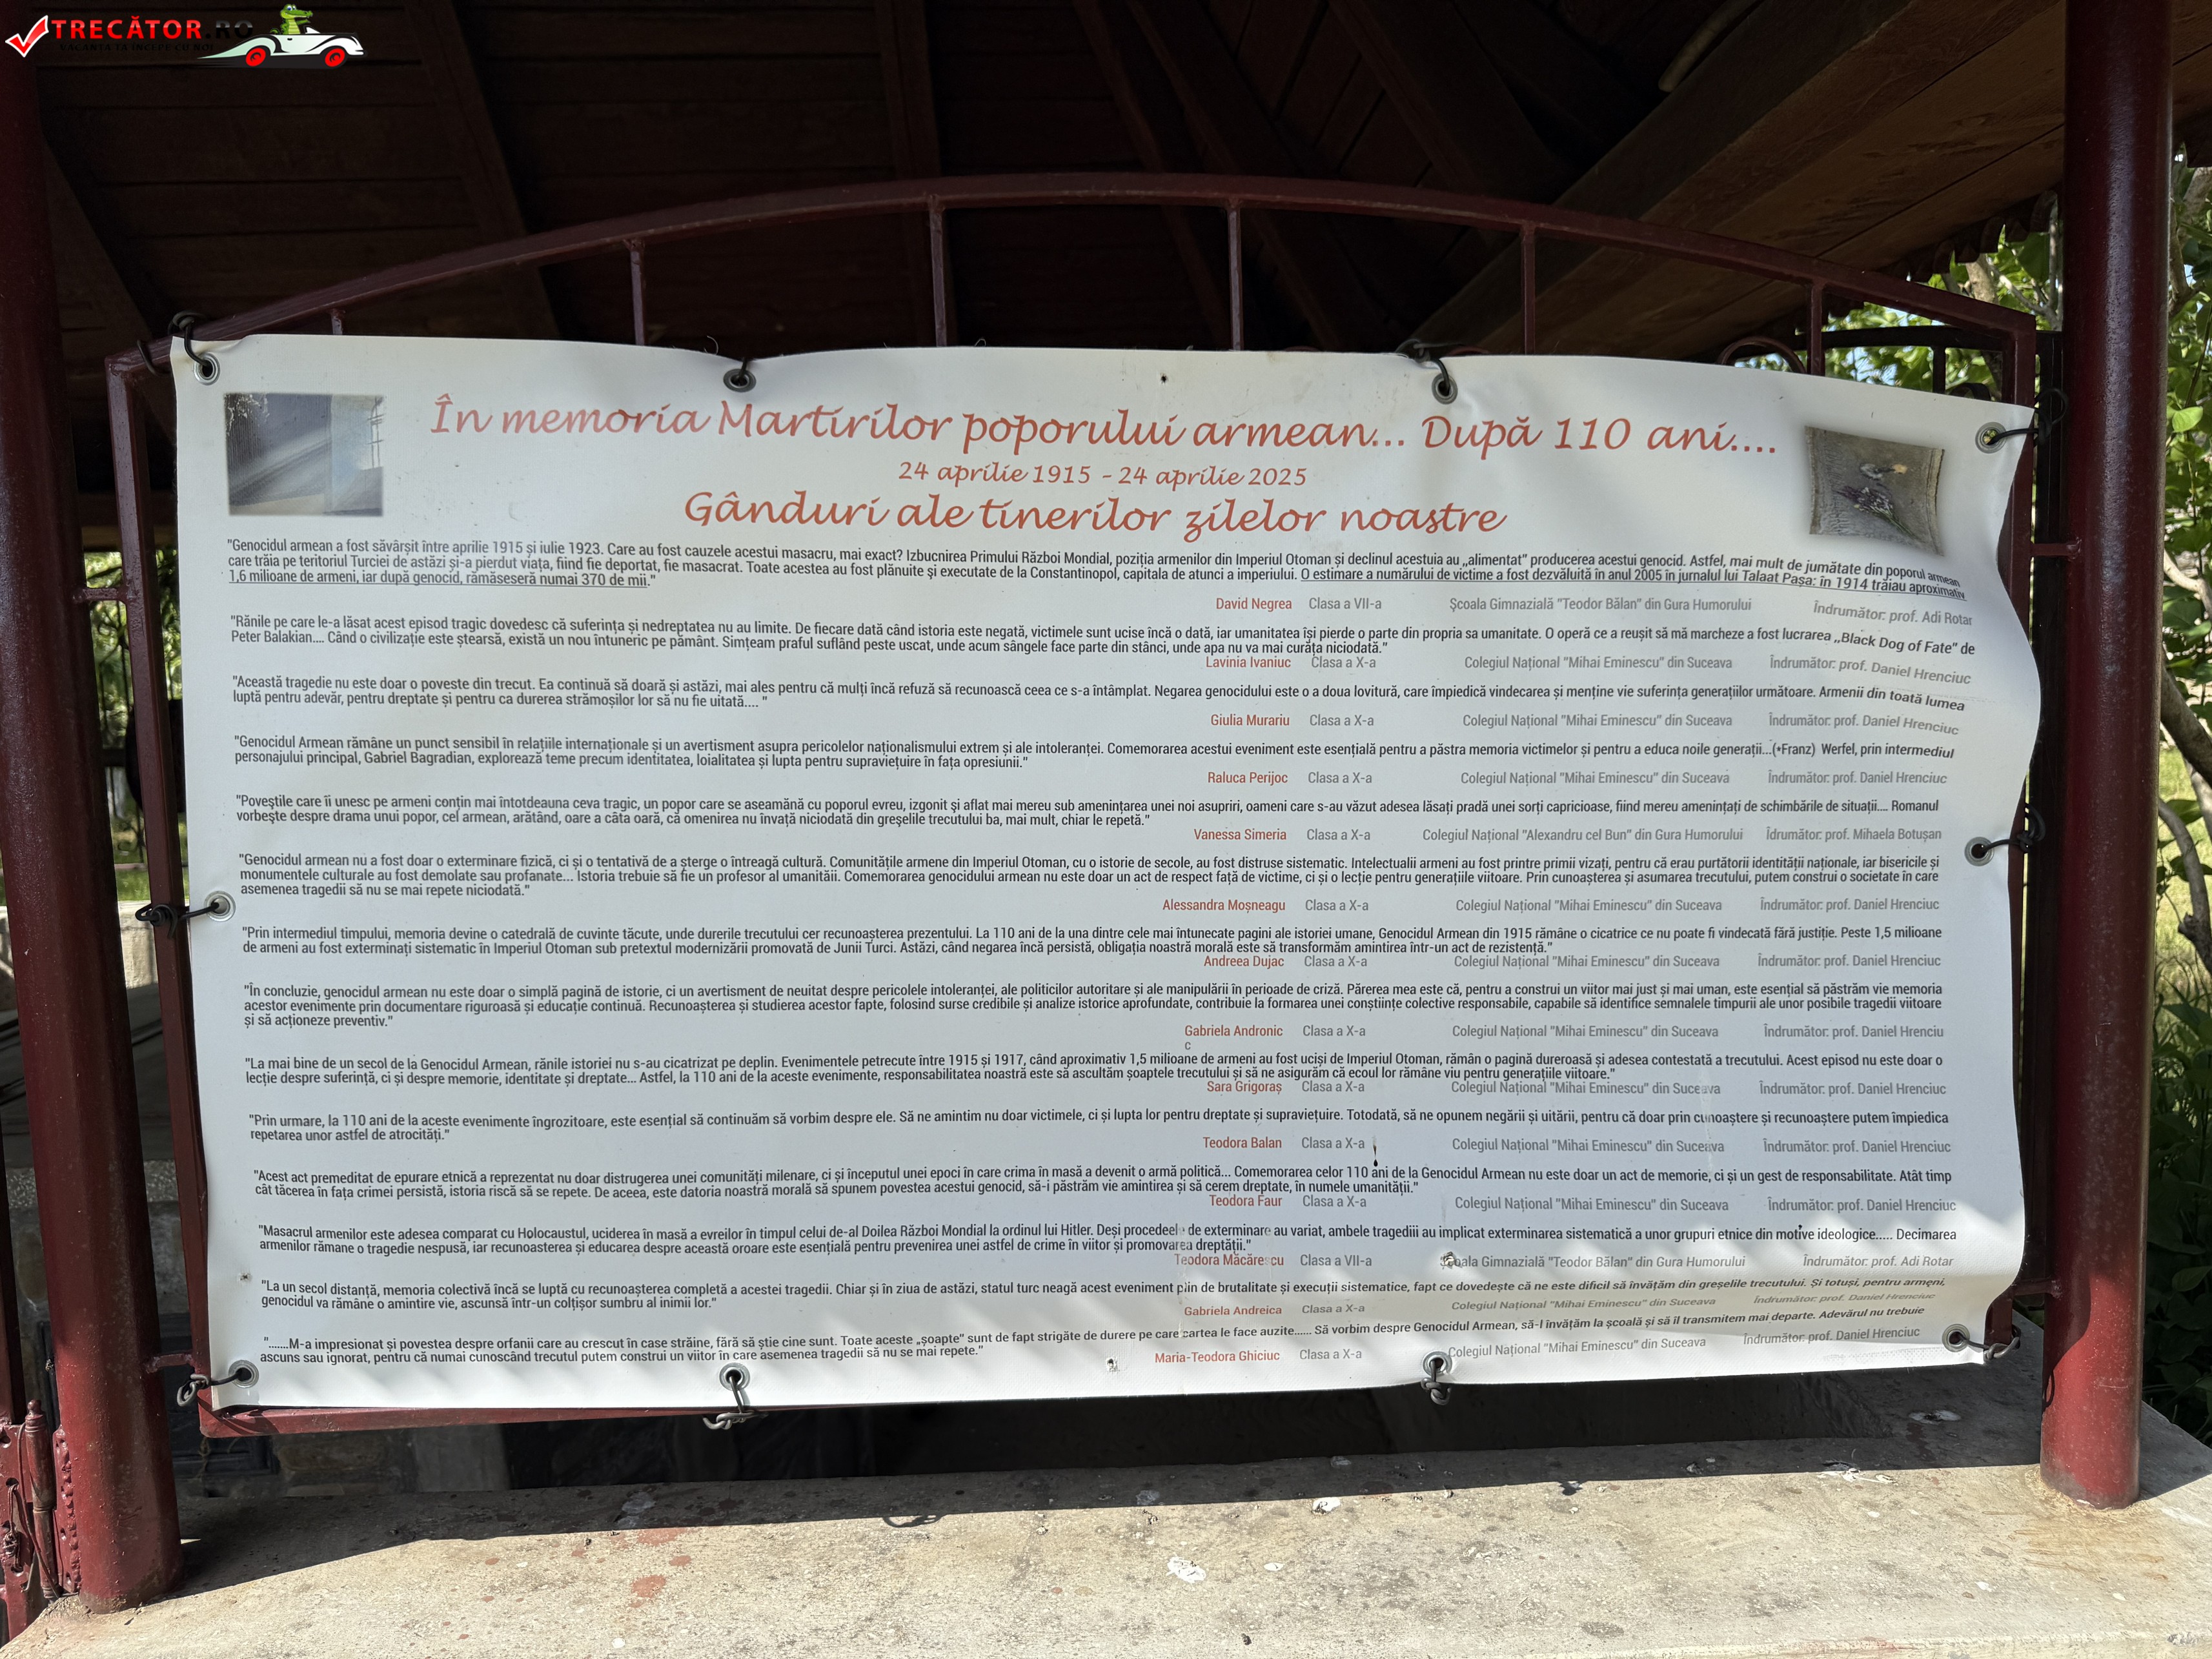 TRECĂTOR.RO
VACANȚA TA ÎNCEPE CU NOI
În memoria Martirilor poporului armean... După 110 ani....
24 aprilie 1915 - 24 aprilie 2025
Gânduri ale tinerilor zilelor noastre
"Genocidul armean a fost săvârșit între aprilie 1915 și iulie 1923. Care au fost cauzele acestui masacru, mai exact? Izbucnirea Primului Război Mondial, poziția armenilor din Imperiul Otoman și declinul acestuia au „alimentat" producerea acestui genocid. Astfel, mai mult de jumătate din poporul armean
care trăia pe teritoriul Turciei de astăzi și-a pierdut viața, fiind fie deportat, fie masacrat. Toate acestea au fost plănuite și executate de la Constantinopol, capitala de atunci a imperiului. O estimare a numărului de victime a fost dezvăluită în anul 2005 în jurnalul lui Talaat Pașa: în 1914 trăiau aproximativ
1,6 milioane de armeni, iar după genocid, rămăseseră numai 370 de mii."
David Negrea Clasa a VII-a Școala Gimnazială "Teodor Bălan" din Gura Humorului Îndrumător: prof. Adi Rotar
"Rănile pe care le-a lăsat acest episod tragic dovedesc că suferința și nedreptatea nu au limite. De fiecare dată când istoria este negată, victimele sunt ucise încă o dată, iar umanitatea își pierde o parte din propria sa umanitate. O operă ce a reușit să mă marcheze a fost lucrarea „Black Dog of Fate" de
Peter Balakian.... Când o civilizație este ștearsă, există un nou întuneric pe pământ. Simțeam praful suflând peste uscat, unde acum sângele face parte din stânci, unde apa nu va mai curăța niciodată."
Lavinia Ivaniuc Clasa a X-a Colegiul Național "Mihai Eminescu" din Suceava Îndrumător: prof. Daniel Hrenciuc
"Această tragedie nu este doar o poveste din trecut. Ea continuă să doară și astăzi, mai ales pentru că mulți încă refuză să recunoască ceea ce s-a întâmplat. Negarea genocidului este o a doua lovitură, care împiedică vindecarea și menține vie suferința generațiilor următoare. Armenii din toată lumea
luptă pentru adevăr, pentru dreptate și pentru ca durerea strămoșilor lor să nu fie uitată.... "
Giulia Murariu Clasa a X-a Colegiul Național "Mihai Eminescu" din Suceava Îndrumător: prof. Daniel Hrenciuc
"Genocidul Armean rămâne un punct sensibil în relațiile internaționale și un avertisment asupra pericolelor naționalismului extrem și ale intoleranței. Comemorarea acestui eveniment este esențială pentru a păstra memoria victimelor și pentru a educa noile generații...(•Franz) Werfel, prin intermediul
personajului principal, Gabriel Bagradian, explorează teme precum identitatea, loialitatea și lupta pentru supraviețuire în fața opresiunii."
Raluca Perijoc Clasa a X-a Colegiul Național "Mihai Eminescu" din Suceava Îndrumător: prof. Daniel Hrenciuc
"Poveștile care îi unesc pe armeni conțin mai întotdeauna ceva tragic, un popor care se aseamănă cu poporul evreu, izgonit și aflat mai mereu sub amenințarea unei noi asupriri, oameni care s-au văzut adesea lăsați pradă unei sorți capricioase, fiind mereu amenințați de schimbările de situații.... Romanul
vorbește despre drama unui popor, cel armean, arătând, oare a câta oară, că omenirea nu învață niciodată din greșelile trecutului ba, mai mult, chiar le repetă."
Vanessa Simeria Clasa a X-a Colegiul Național "Alexandru cel Bun" din Gura Humorului Îdrumător: prof. Mihaela Botușan
"Genocidul armean nu a fost doar o exterminare fizică, ci și o tentativă de a șterge o întreagă cultură. Comunitățile armene din Imperiul Otoman, cu o istorie de secole, au fost distruse sistematic. Intelectualii armeni au fost printre primii vizați, pentru că erau purtătorii identității naționale, iar bisericile și
monumentele culturale au fost demolate sau profanate... Istoria trebuie să fie un profesor al umanităii. Comemorarea genocidului armean nu este doar un act de respect față de victime, ci și o lecție pentru generațiile viitoare. Prin cunoașterea și asumarea trecutului, putem construi o societate în care
asemenea tragedii să nu se mai repete niciodată."
Alessandra Moșneagu Clasa a X-a Colegiul Național "Mihai Eminescu" din Suceava Îndrumător: prof. Daniel Hrenciuc
"Prin intermediul timpului, memoria devine o catedrală de cuvinte tăcute, unde durerile trecutului cer recunoașterea prezentului. La 110 ani de la una dintre cele mai întunecate pagini ale istoriei umane, Genocidul Armean din 1915 rămâne o cicatrice ce nu poate fi vindecată fără justiție. Peste 1,5 milioane
de armeni au fost exterminați sistematic în Imperiul Otoman sub pretextul modernizării promovată de Junii Turci. Astăzi, când negarea încă persistă, obligația noastră morală este să transformăm amintirea într-un act de rezistență."
Andreea Dujac Clasa a X-a Colegiul Național "Mihai Eminescu" din Suceava Îndrumător: prof. Daniel Hrenciuc
"În concluzie, genocidul armean nu este doar o simplă pagină de istorie, ci un avertisment de neuitat despre pericolele intoleranței, ale politicilor autoritare și ale manipulării în perioade de criză. Părerea mea este că, pentru a construi un viitor mai just și mai uman, este esențial să păstrăm vie memoria
acestor evenimente prin documentare riguroasă și educație continuă. Recunoașterea și studierea acestor fapte, folosind surse credibile și analize istorice aprofundate, contribuie la formarea unei conștiințe colective responsabile, capabile să identifice semnalele timpurii ale unor posibile tragedii viitoare
și să acționeze preventiv."
Gabriela Andronic Clasa a X-a Colegiul Național "Mihai Eminescu" din Suceava Îndrumător: prof. Daniel Hrenciu
c
"La mai bine de un secol de la Genocidul Armean, rănile istoriei nu s-au cicatrizat pe deplin. Evenimentele petrecute între 1915 și 1917, când aproximativ 1,5 milioane de armeni au fost uciși de Imperiul Otoman, rămân o pagină dureroasă și adesea contestată a trecutului. Acest episod nu este doar o
lecție despre suferință, ci și despre memorie, identitate și dreptate... Astfel, la 110 ani de la aceste evenimente, responsabilitatea noastră este să ascultăm șoaptele trecutului și să ne asigurăm că ecoul lor rămâne viu pentru generațiile viitoare."
Sara Grigoraș Clasa a X-a Colegiul Național "Mihai Eminescu" din Suceava Îndrumător: prof. Daniel Hrenciuc
"Prin urmare, la 110 ani de la aceste evenimente îngrozitoare, este esențial să continuăm să vorbim despre ele. Să ne amintim nu doar victimele, ci și lupta lor pentru dreptate și supraviețuire. Totodată, să ne opunem negării și uitării, pentru că doar prin cunoaștere și recunoaștere putem împiedica
repetarea unor astfel de atrocități."
Teodora Balan Clasa a X-a Colegiul Național "Mihai Eminescu" din Suceava Îndrumător: prof. Daniel Hrenciuc
"Acest act premeditat de epurare etnică a reprezentat nu doar distrugerea unei comunități milenare, ci și începutul unei epoci în care crima în masă a devenit o armă politică... Comemorarea celor 110 ani de la Genocidul Armean nu este doar un act de memorie, ci și un gest de responsabilitate. Atât timp
cât tăcerea în fața crimei persistă, istoria riscă să se repete. De aceea, este datoria noastră morală să spunem povestea acestui genocid, să-i păstrăm vie amintirea și să cerem dreptate, în numele umanității."
Teodora Faur Clasa a X-a Colegiul Național "Mihai Eminescu" din Suceava Îndrumător: prof. Daniel Hrenciuc
"Masacrul armenilor este adesea comparat cu Holocaustul, uciderea în masă a evreilor în timpul celui de-al Doilea Război Mondial la ordinul lui Hitler. Deși procedeele de exterminare au variat, ambele tragediii au implicat exterminarea sistematică a unor grupuri etnice din motive ideologice..... Decimarea
armenilor rămane o tragedie nespusă, iar recunoasterea și educarea despre această oroare este esențială pentru prevenirea unei astfel de crime în viitor și promovarea dreptății."
Teodora Măcărescu Clasa a VII-a Școala Gimnazială "Teodor Bălan" din Gura Humorului Îndrumător: prof. Adi Rotar
"La un secol distanță, memoria colectivă încă se luptă cu recunoașterea completă a acestei tragedii. Chiar și în ziua de astăzi, statul turc neagă acest eveniment plin de brutalitate și execuții sistematice, fapt ce dovedește că ne este dificil să învățăm din greșelile trecutului. Și totuși, pentru armeni,
genocidul va rămâne o amintire vie, ascunsă într-un colțișor sumbru al inimii lor."
Gabriela Andreica Clasa a X-a Colegiul Național "Mihai Eminescu" din Suceava Îndrumător: prof. Daniel Hrenciuc
".......M-a impresionat și povestea despre orfanii care au crescut în case străine, fără să știe cine sunt. Toate aceste „șoapte" sunt de fapt strigăte de durere pe care cartea le face auzite...... Să vorbim despre Genocidul Armean, să-l învățăm la școală și să îl transmitem mai departe. Adevărul nu trebuie
ascuns sau ignorat, pentru că numai cunoscând trecutul putem construi un viitor în care asemenea tragedii să nu se mai repete."
Maria-Teodora Ghiciuc Clasa a X-a Colegiul Național "Mihai Eminescu" din Suceava Îndrumător: prof. Daniel Hrenciuc